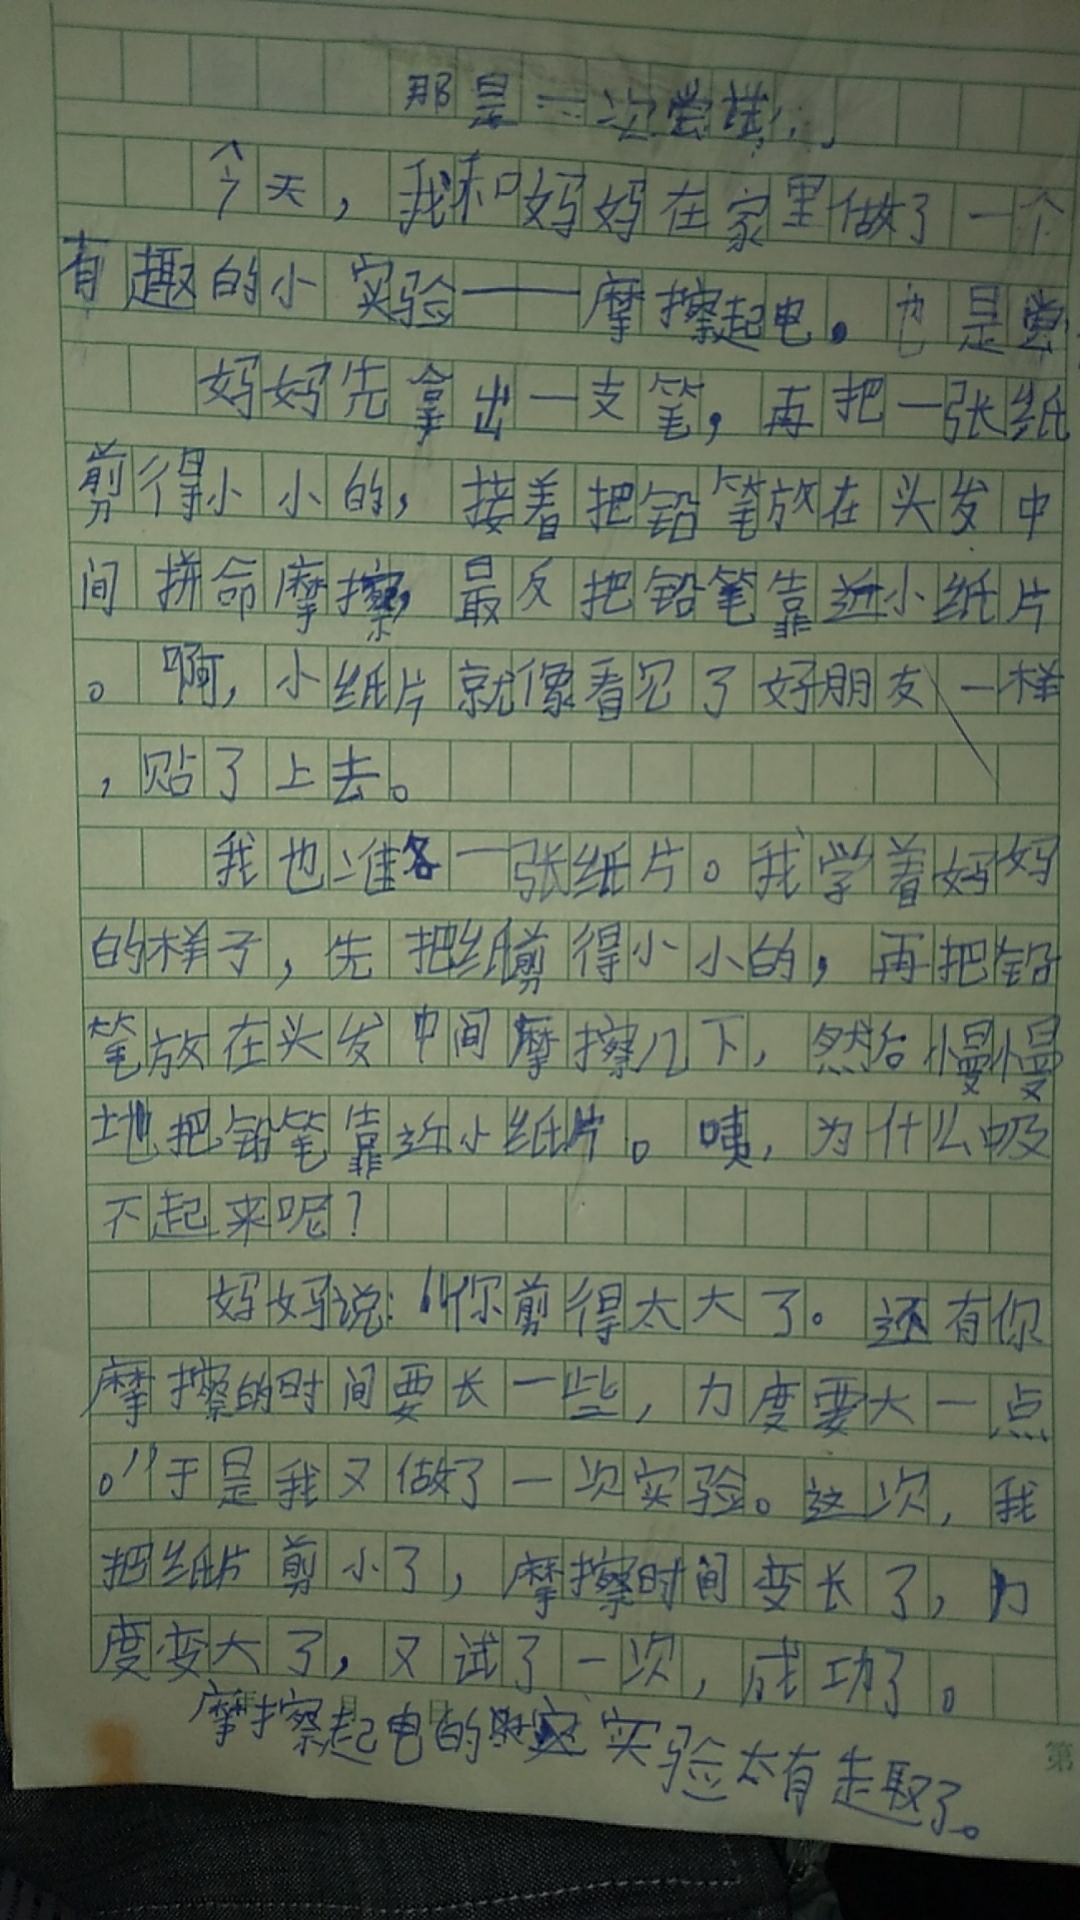 那是一次尝试
今天，我和妈妈在家里做了一个
有趣的小实验——摩擦起电。也是尝
妈妈先拿出一支笔，再把一张纸
剪得小小的，接着把铅笔放在头发中
间拼命摩擦，最反把铅笔靠近小纸片
。啊，小纸片就像看见了好朋友一样
，贴了上去。
我也准备一张纸片。我学着妈妈
的样子，先把纸剪得小小的，再把铅
笔放在头发中间摩擦几下，然后慢慢
地把铅笔靠近小纸片。咦，为什么吸
不起来呢？
妈妈说：“你剪得太大了。还有你
摩擦的时间要长一些，力度要大一点
。”于是我又做了一次实验。这次，我
把纸片剪小了，摩擦时间变长了，力
度变大了，又试了一次，成功了。
摩擦起电的实验太有趣了。
第